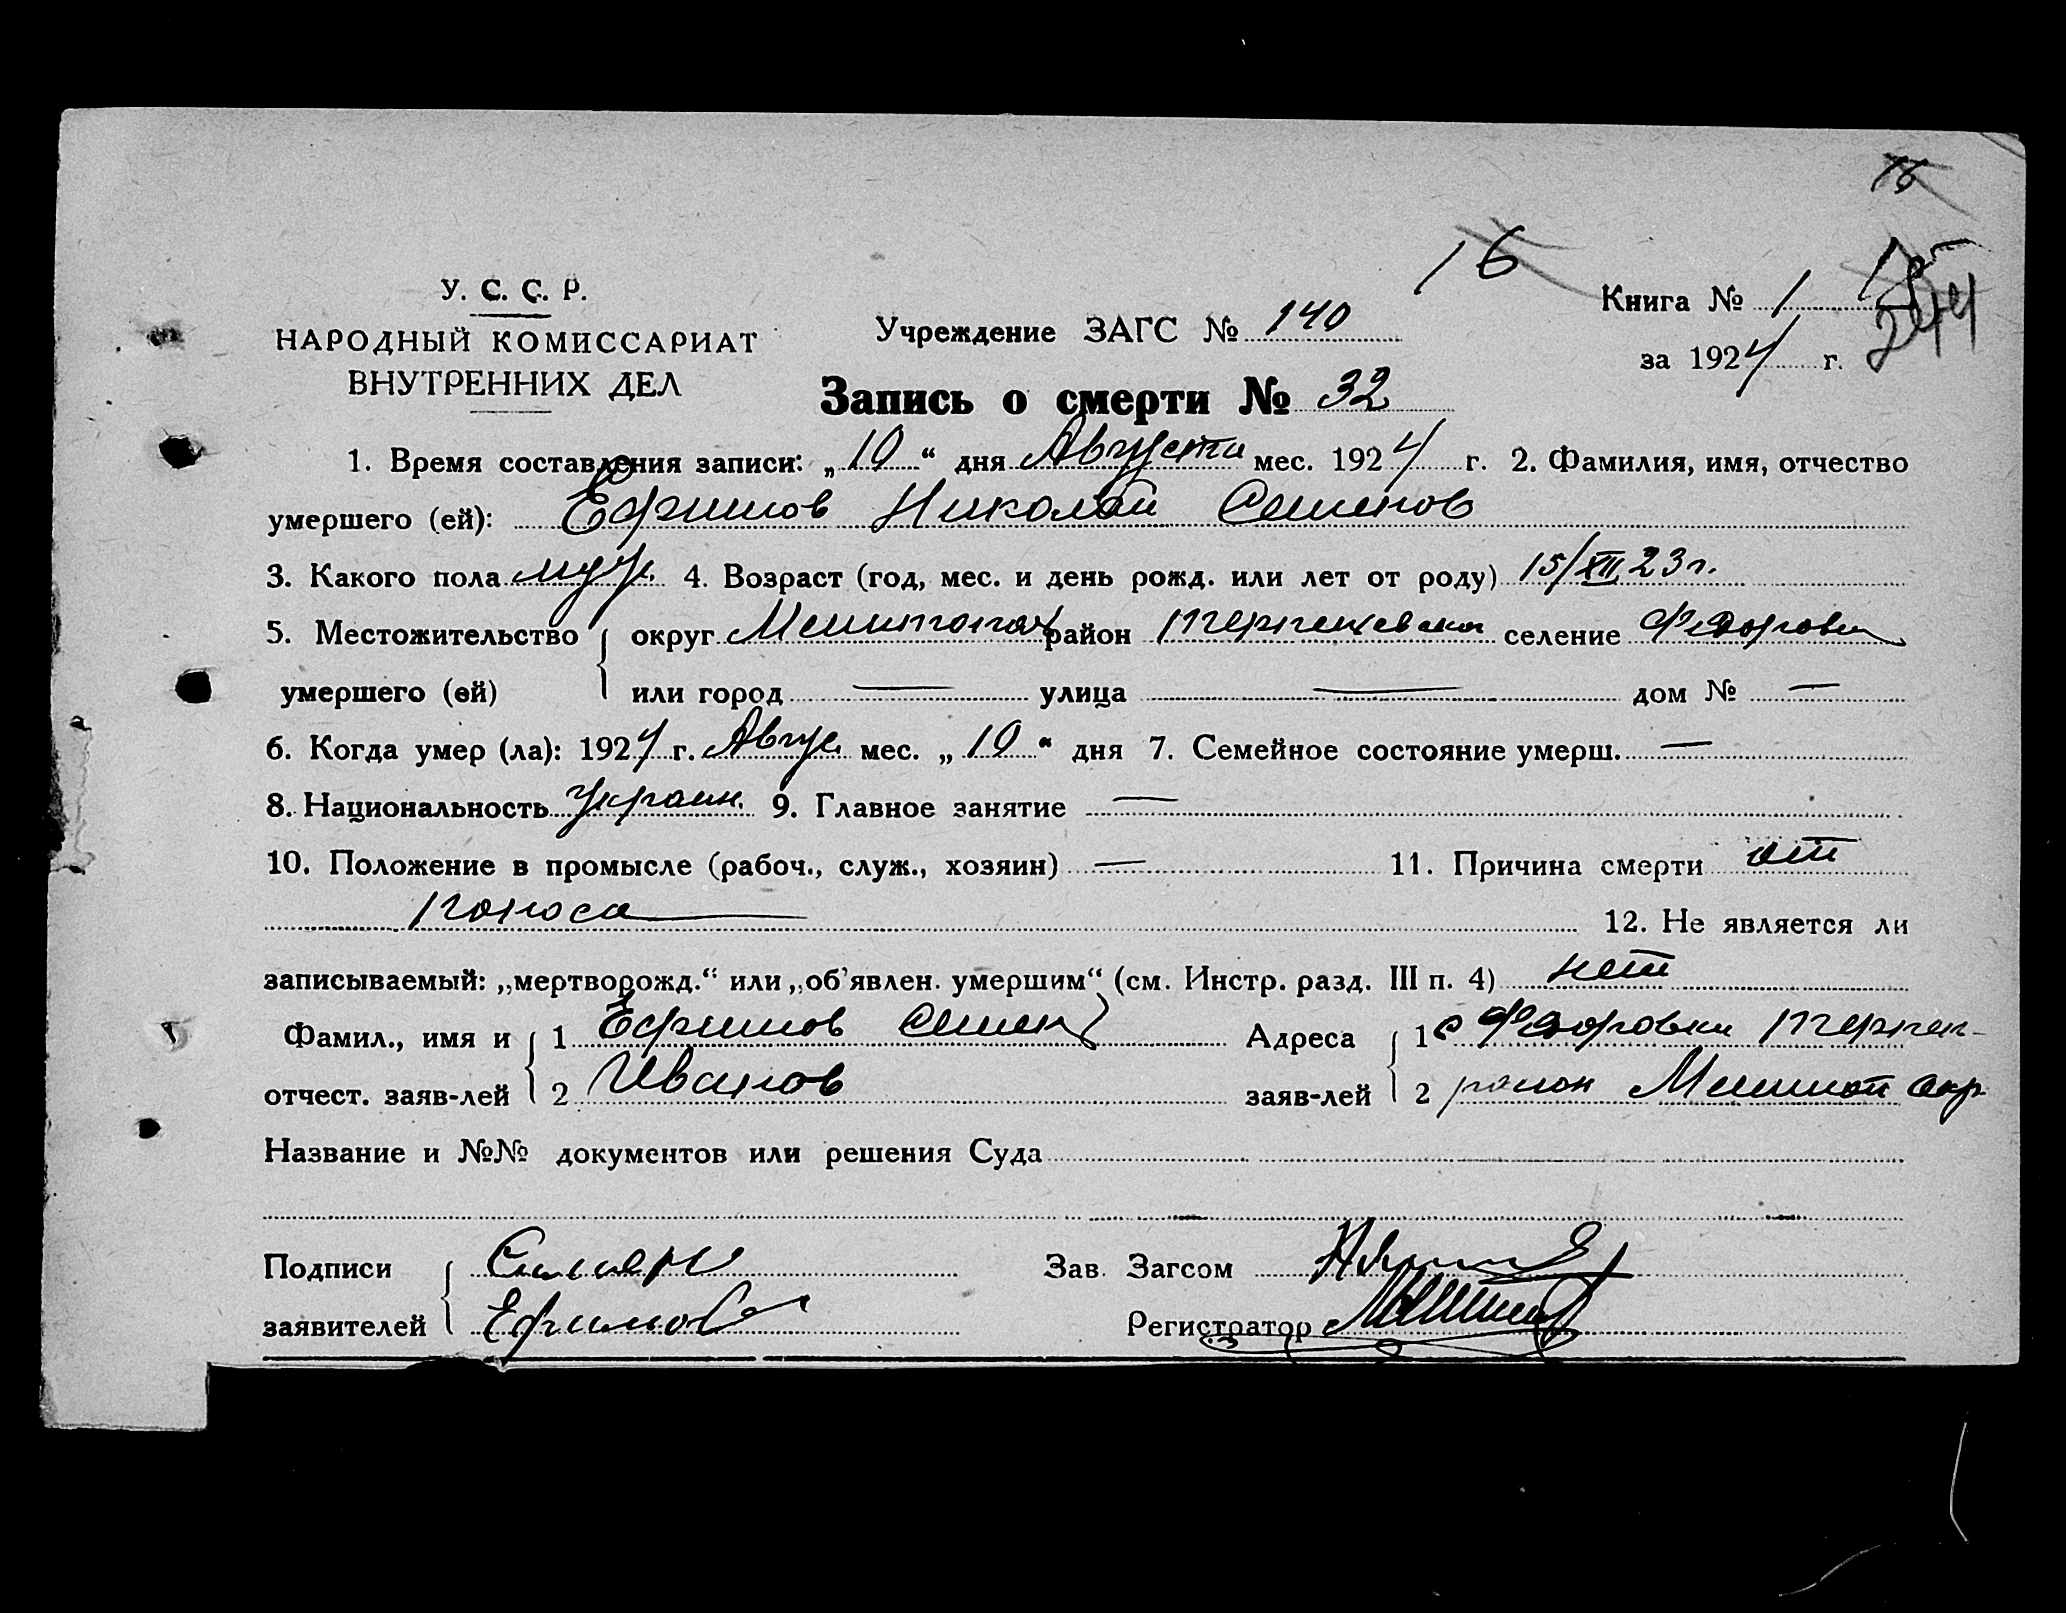 16
16
15
244
У. С. С. Р.
НАРОДНЫЙ КОМИССАРИАТ
ВНУТРЕННИХ ДЕЛ
Учреждение ЗАГС № 140
Книга № 1
за 1924 г.
Запись о смерти № 32
1. Время составления записи: „10“ дня Августа мес. 1924 г. 2. Фамилия, имя, отчество
умершего (ей): Ефимов Николай Семенов
3. Какого пола муж. 4. Возраст (год, мес. и день рожд. или лет от роду) 15/XII 23 г.
5. Местожительство округ район селение Федоровка
умершего (ей) или город — улица — дом № —
6. Когда умер (ла): 1924 г. Авгус. мес. „10“ дня 7. Семейное состояние умерш. —
8. Национальность украин. 9. Главное занятие —
10. Положение в промысле (рабоч., служ., хозяин) — 11. Причина смерти от
поноса 12. Не является ли
записываемый: „мертворожд.“ или „об’явлен. умершим“ (см. Инстр. разд. III п. 4) нет
Фамил., имя и 1 Ефимов Семен Адреса 1 с Федоровки Терпен-
отчест. заяв-лей 2 Иванов заяв-лей 2 район Мелитоп окр
Название и №№ документов или решения Суда
Подписи Зав. Загсом
заявителей Ефимов Регистратор